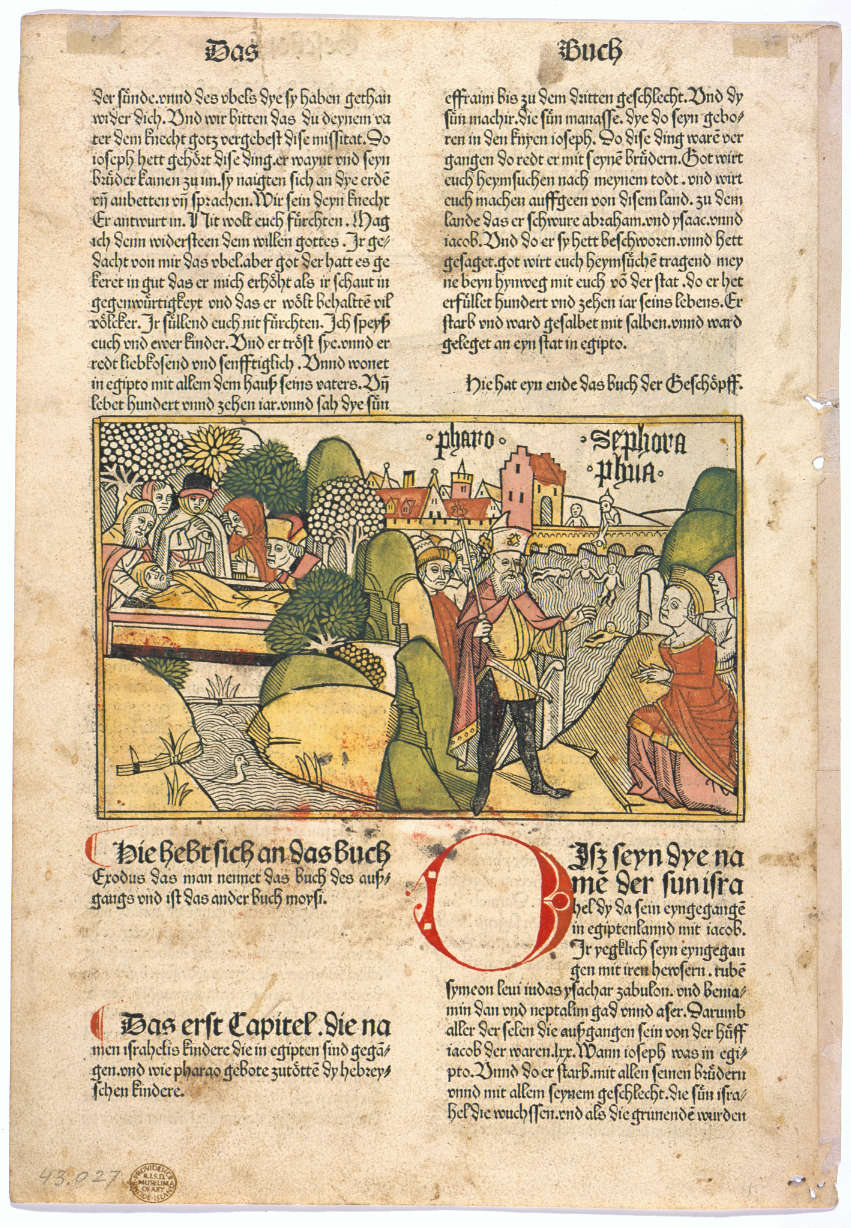 Das Buch
der sünde.vnnd des vbels dye sy haben gethan
wider dich. Vnd wir bitten das du deynem va
ter dem knecht gotz vergebest dise missitat. Do
ioseph hett gehört dise ding.er waynt vnd seyn
brüder kamen zu im.sy naigten sich an dye erdē
vñ anbetten vñ sprachen. Wir sein deyn knecht
Er antwurt in. Nit wolt euch fürchten. Mag
ich denn widersteen dem willen gottes. Ir ge⸗
dacht von mir das vbel.aber got der hatt es ge
keret in gut das er mich erhöht als ir schaut in
gegenwürtigkeyt vnd das er wölt behaltten vil
völcker. Ir süllend euch nit fürchten. Ich speyß
euch vnd ewer kinder. Vnd er tröst sye.vnnd er
redt liebkosend vnd senfftiglich. Vnnd wonet
in egipto mit allem dem hauß seins vaters. Vñ
lebet hundert vnnd zehen iar.vnnd sah dye sün
effraim bis zu dem dritten geschlecht. Vnd dy
sün machir.die sün manasse.dye do seyn gebo⸗
ren in den knyen ioseph. Do dise ding warē ver
gangen do redt er mit seynē brüdern.Got wirt
euch heymsuchen nach meynem todt.vnd wirt
euch machen auffgeen von disem land. zu dem
lande das er schwure abraham.vnd ysaac.vnnd
iacob. Vnd do er sy hett beschworen.vnnd hett
gesaget.got wirt euch heymsüchē tragend mey
ne beyn hynweg mit euch vō der stat.do er het
erfüllet hundert vnd zehen iar seins lebens. Er
starb vnd ward gesalbet mit salben.vnnd ward
geleget an eyn stat in egipto.
Hie hat eyn ende das buch der Geschöpff.
pharo
Sephora
phua
Hie hebt sich an das buch
Exodus das man nennet das buch des auß⸗
gangs vnd ist das ander buch moysi.
Das erst Capitel.die na
men israhelis kindere die in egipten sind gegā⸗
gen.vnd wie pharao gebote zutöttē dy hebrey⸗
schen kindere.
Disz seyn dye na
mē der sun isra
hel dy da sein eyngegangē
in egiptenlannd mit iacob.
Ir yegklich seyn eyngegan
gen mit iren hewsern.rubē
symeon leui iudas ysachar zabulon.vnd benia⸗
min dan vnd neptalim gad vnnd aser. Darumb
aller der selen die außgangen sein von der hüff
iacob der waren.lxx. Wann ioseph was in egi⸗
pto. Vnnd do er starb.mit allen seinen brüdern
vnnd mit allem seynem geschlecht.die sün isra⸗
hel die wuchssen.vnd als die grunendē wurden
43.027
PROVIDENCE
R.I.S.D.
MUSEUM
OF ART
RHODE-ISLAND